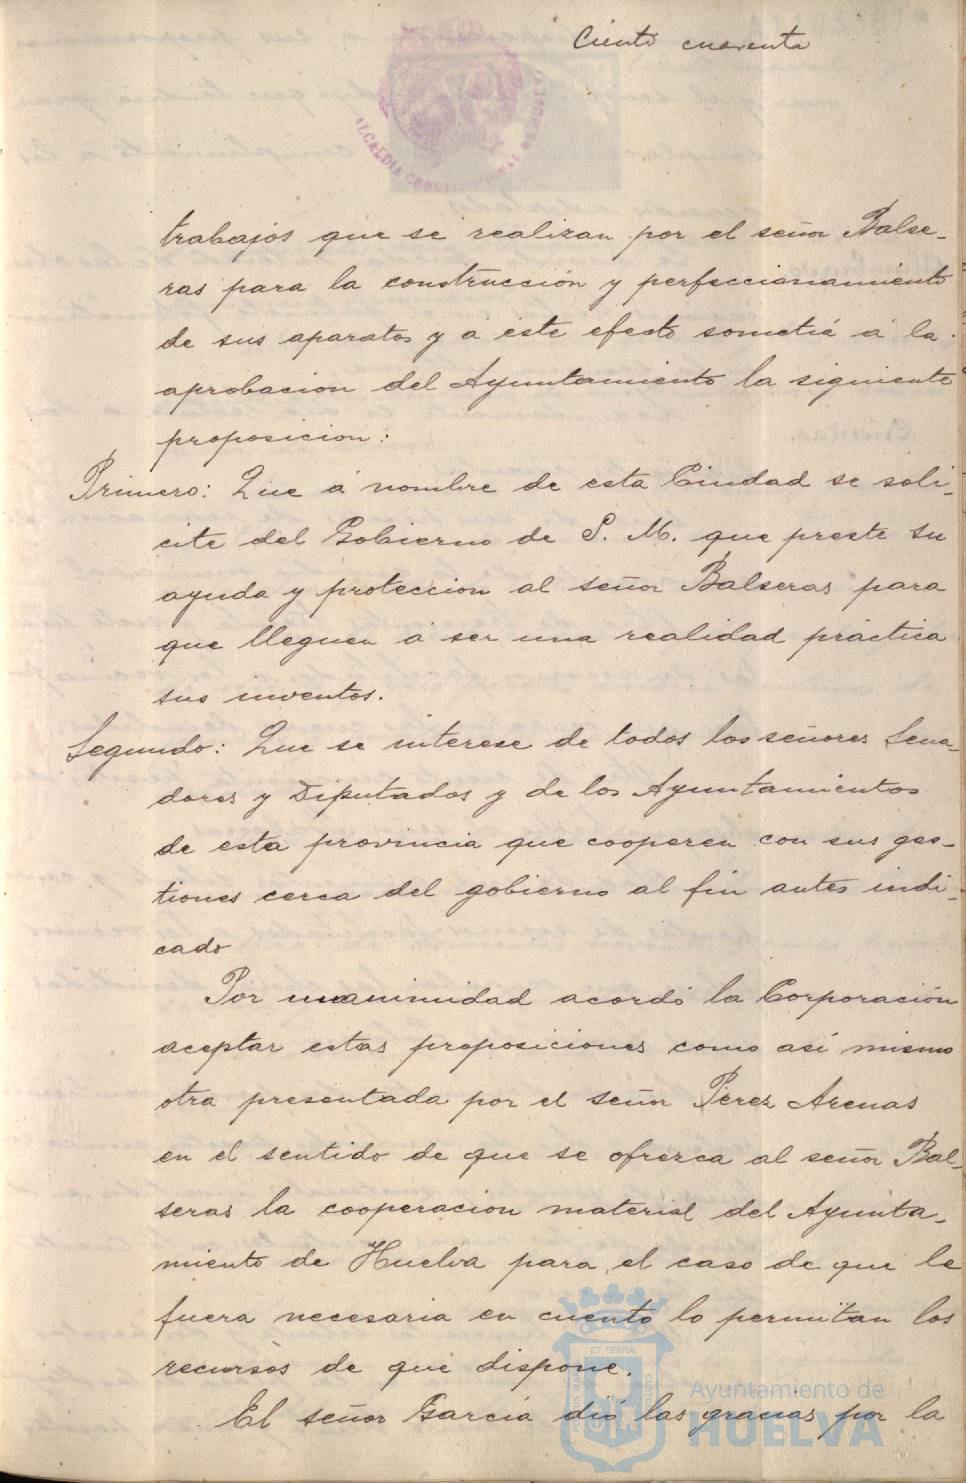 Ciento cuarenta
ALCALDIA CONSTITUCIONAL
trabajos que se realizan por el señor Balse-
ras para la construcción y perfeccionamiento
de sus aparatos y a este efecto sometió á la
aprobacion del Ayuntamiento la siguiente
proposicion:
Primero: Que á nombre de esta Ciudad se soli-
cite del Gobierno de S. M. que preste su
ayuda y proteccion al señor Balseras para
que lleguen á ser una realidad práctica
sus inventos.
Segundo: Que se interese de todos los señores Sena-
dores y Diputados y de los Ayuntamientos
de esta provincia que cooperen con sus ges-
tiones cerca del gobierno al fin antes indi-
cado
Por unanimidad acordó la Corporación
aceptar estas proposiciones como así mismo
otra presentada por el señor Pérez Arenas
en el sentido de que se ofrezca al señor Bal-
seras la cooperacion material del Ayunta-
miento de Huelva para el caso de que le
fuera necesaria en cuento lo permitan los
recursos de que dispone.
El señor García dió las gracias por la
ET TERRÆ
PORTUS MARIS
CUSTODIA
Ayuntamiento de
HUELVA